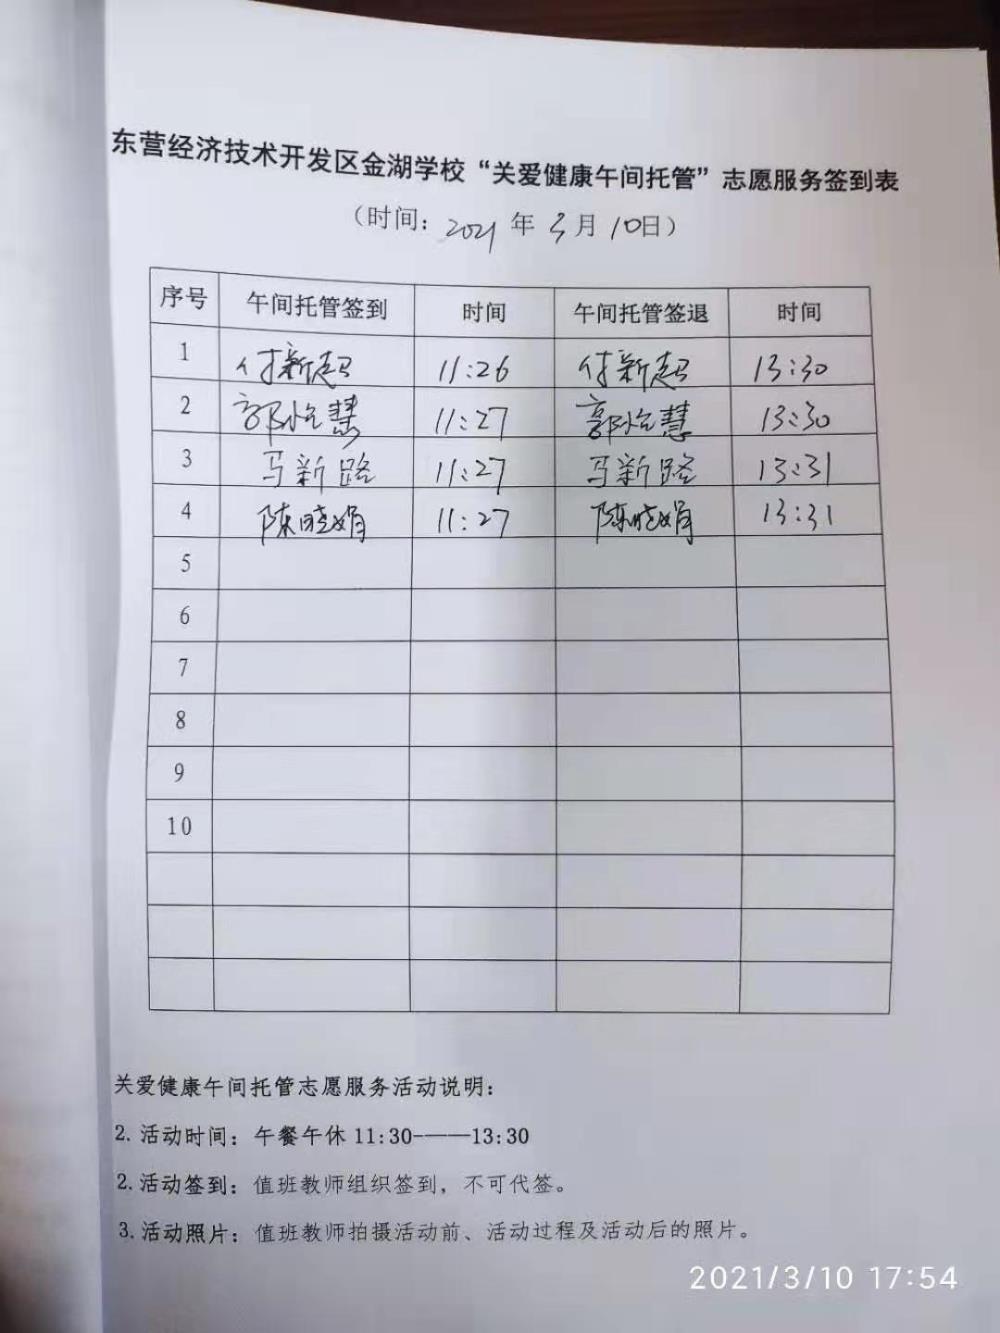 东营经济技术开发区金湖学校“关爱健康午间托管”志愿服务签到表
（时间：2021年3月10日）
序号 午间托管签到 时间 午间托管签退 时间
1 付新超 11:26 付新超 13:30
2 郭怡慧 11:27 郭怡慧 13:30
3 马新路 11:27 马新路 13:31
4 陈晓娟 11:27 陈晓娟 13:31
5
6
7
8
9
10
关爱健康午间托管志愿服务活动说明：
2.活动时间：午餐午休11:30-——13:30
2.活动签到：值班教师组织签到，不可代签。
3.活动照片：值班教师拍摄活动前、活动过程及活动后的照片。
2021/3/10 17:54